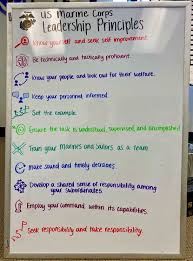 US Marine Corps
Leadership Principles
Know yourself and seek self improvement.
Be technically and tactically proficient.
Know your people and look out for their welfare.
Keep your personnel informed.
Set the example.
Ensure the task is understood, supervised, and accomplished
Train your Marines and Sailors as a team
Make sound and timely decisions
Develop a shared sense of responsibility among
your subordinates.
Employ your command within its capabilities.
Seek responsibility and take responsibility.